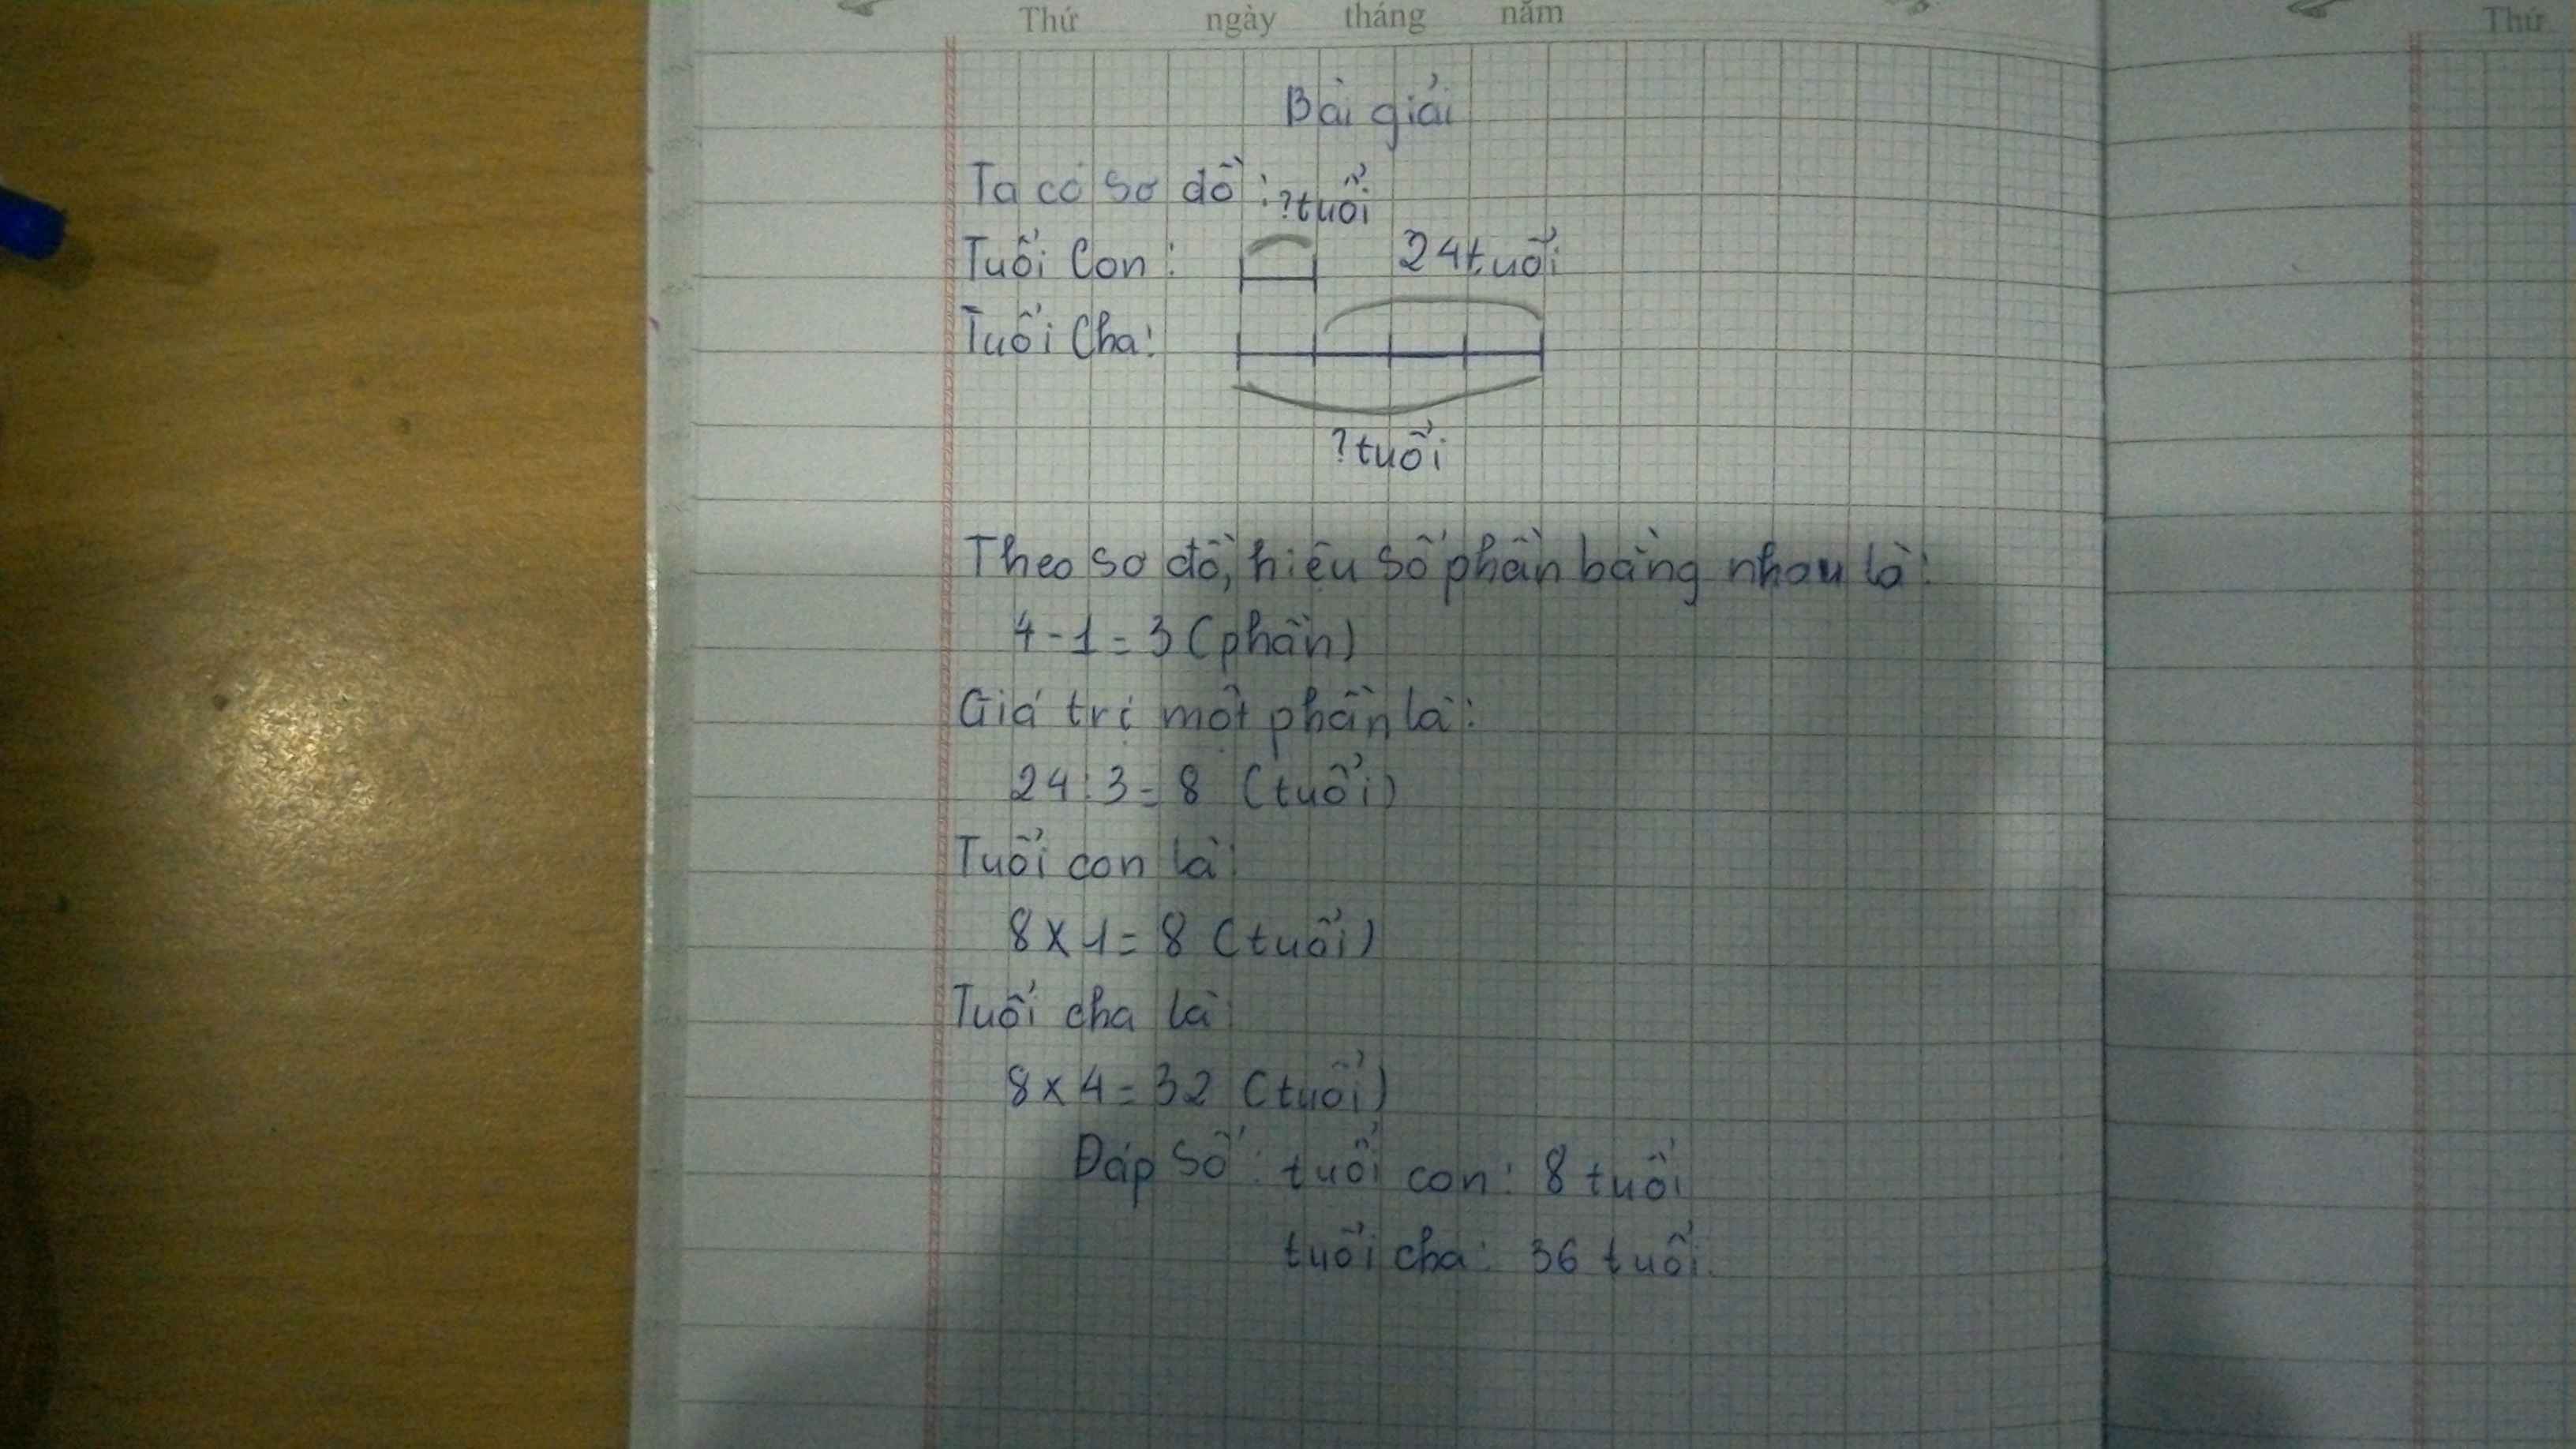 Thứ ngày tháng năm
Thứ
Bài giải
Ta có sơ đồ:
?tuổi
Tuổi Con:
24tuổi
Tuổi Cha:
?tuổi
Theo sơ đồ, hiệu số phần bằng nhau là:
4-1=3(phần)
Giá trị một phần là:
24:3=8 (tuổi)
Tuổi con là:
8x1=8 (tuổi)
Tuổi cha là:
8x4=32 (tuổi)
Đáp số: tuổi con: 8 tuổi
tuổi cha: 36 tuổi.